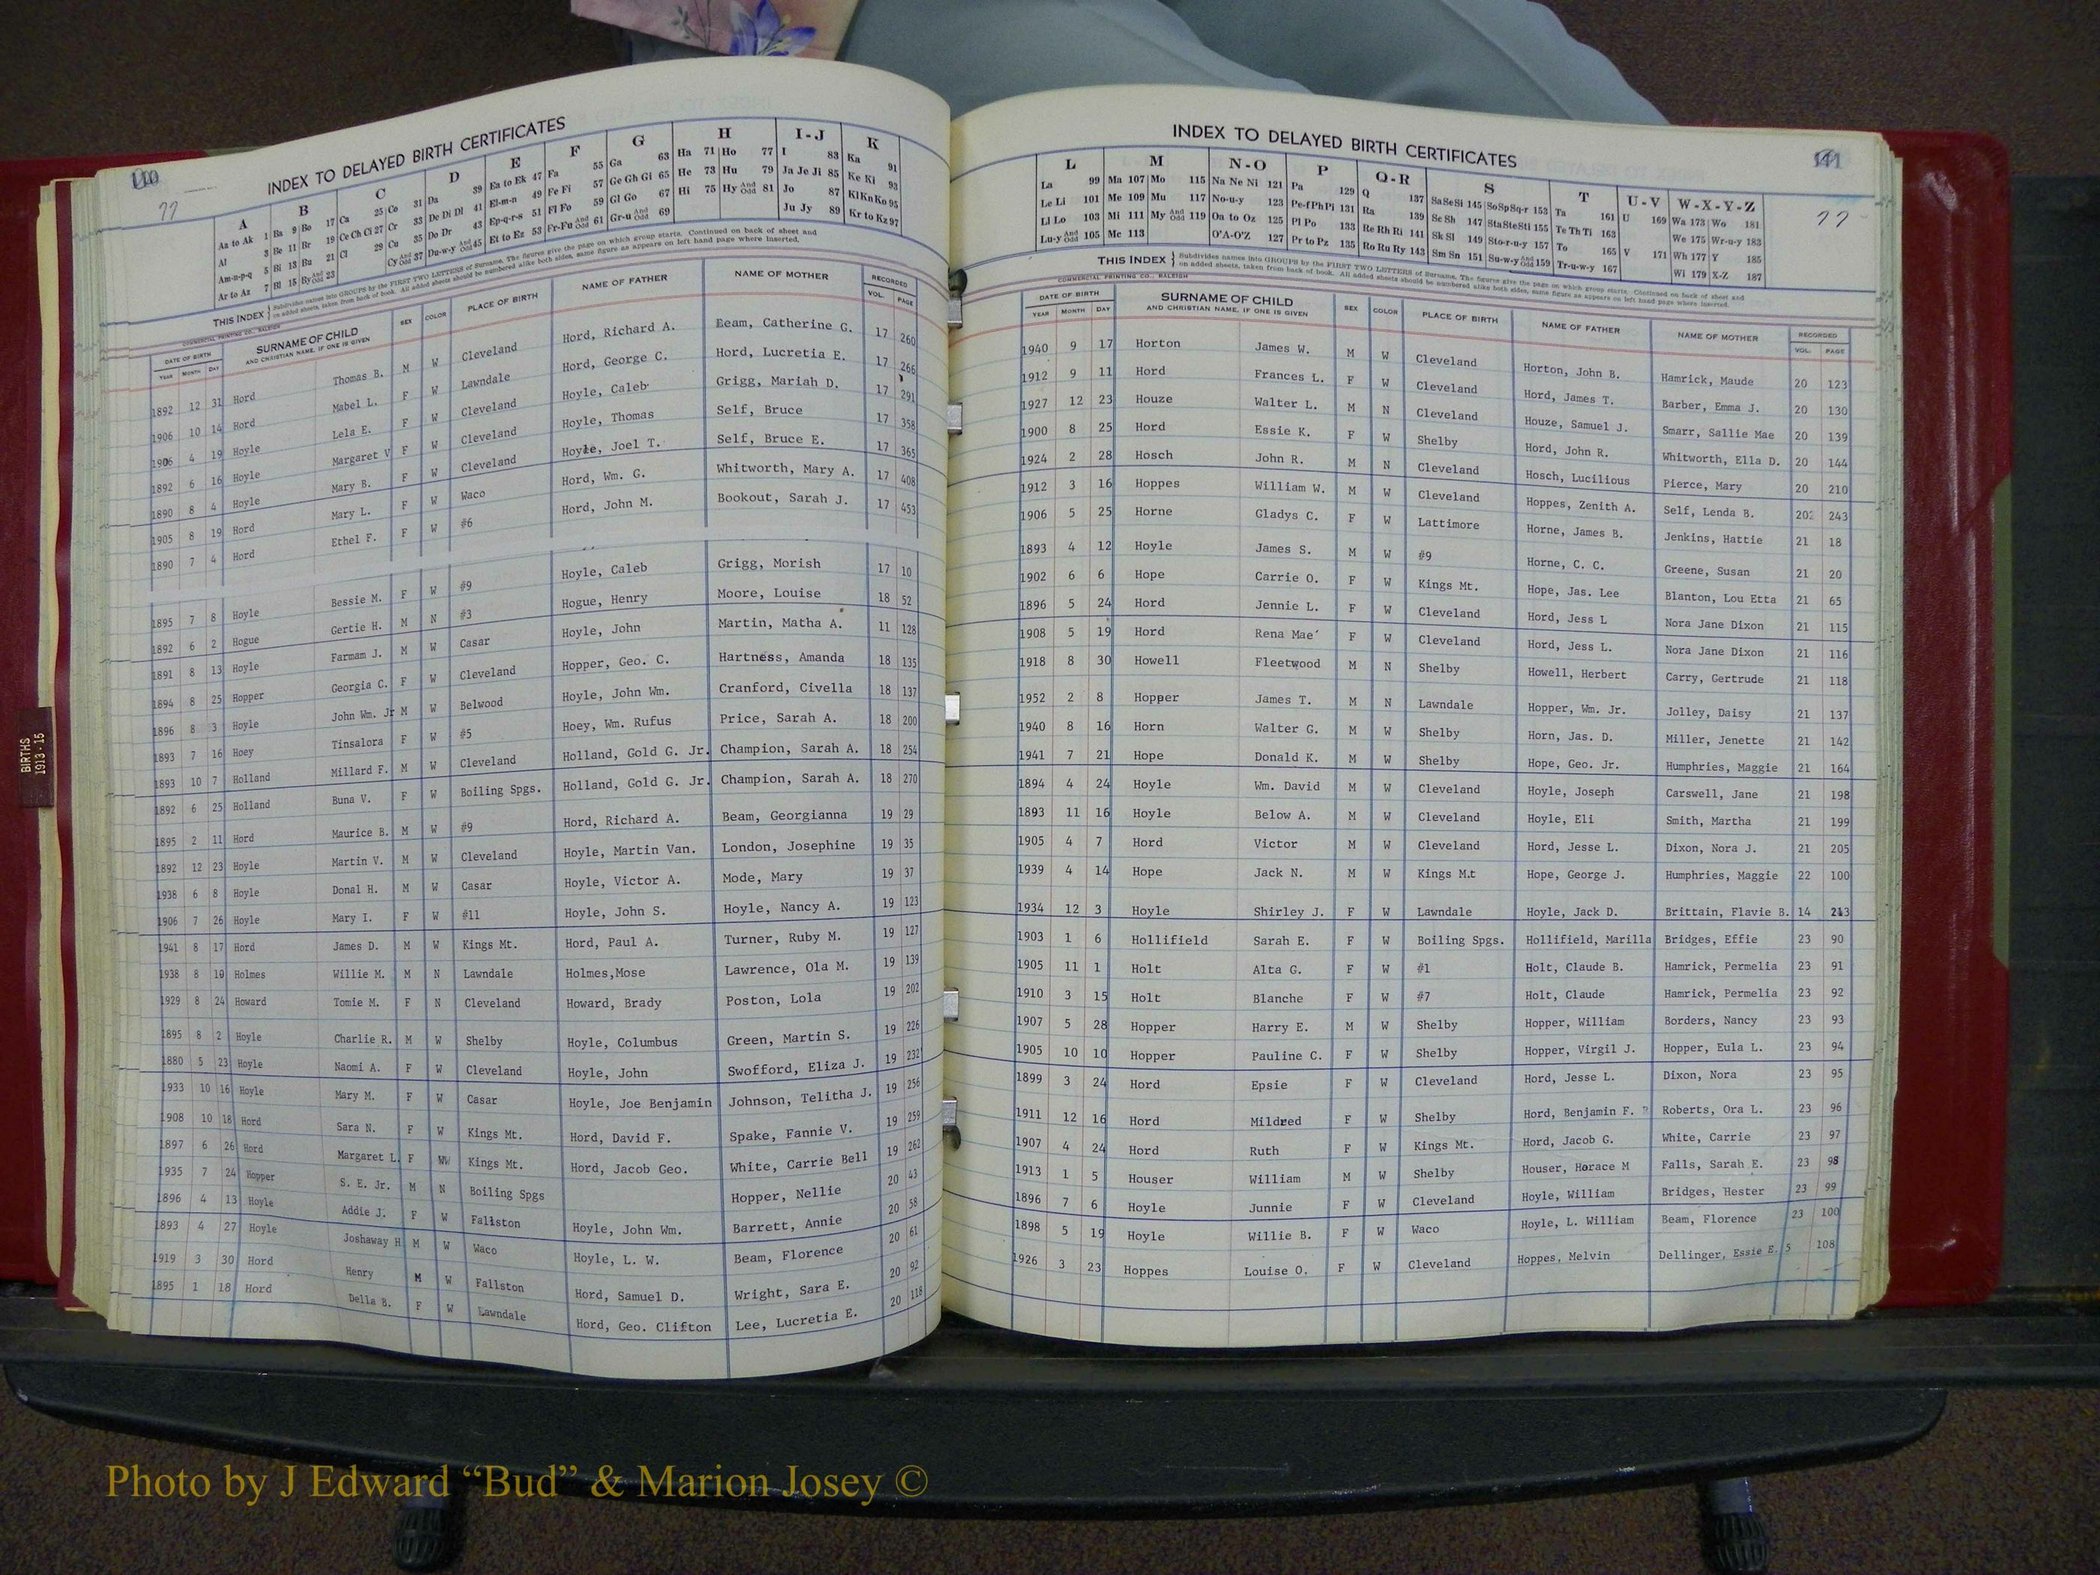 110
77
INDEX TO DELAYED BIRTH CERTIFICATES
A B C D E F G H I-J K
Aa to Ak 1 Ba 9 Bo 17 Ca 25 Co 31 Da 39 Ea to Ek 47 Fa 55 Ga 63 Ha 71 Ho 77 I 83 Ka 91
Al 3 Be 11 Br 19 Ce Ch Ci 27 Cr 33 De Di Dl 41 El-m-n 49 Fe Fi 57 Ge Gh Gi 65 He 73 Hu 79 Ja Je Ji 85 Ke Ki 93
Am-n-p-q 5 Bi 13 Bu 21 Cl 29 Cu 35 Do Dr 43 Ep-q-r-s 51 Fl Fo 59 Gl Go 67 Hi 75 Hy And Odd 81 Jo 87 Kl Kn Ko 95
Ar to Az 7 Bl 15 By And Odd 23 Cy And Odd 37 Du-w-y And Odd 45 Et to Ez 53 Fr-Fu And Odd 61 Gr-u And Odd 69 Ju Jy 89 Kr to Kz 97
THIS INDEX } Subdivides names into GROUPS by the FIRST TWO LETTERS of Surname. The figures give the page on which group starts. Continued on back of sheet and
on added sheets, taken from back of book. All added sheets should be numbered alike both sides, same figure as appears on left hand page where inserted.
COMMERCIAL PRINTING CO., RALEIGH
DATE OF BIRTH SURNAME OF CHILD SEX COLOR PLACE OF BIRTH NAME OF FATHER NAME OF MOTHER RECORDED
YEAR MONTH DAY AND CHRISTIAN NAME, IF ONE IS GIVEN VOL. PAGE
1892 12 31 Hord Thomas B. M W Cleveland Hord, Richard A. Beam, Catherine G. 17 260
1906 10 14 Hord Mabel L. F W Lawndale Hord, George C. Hord, Lucretia E. 17 266
1906 4 19 Hoyle Lela E. F W Cleveland Hoyle, Caleb Grigg, Mariah D. 17 291
1892 6 16 Hoyle Margaret V F W Cleveland Hoyle, Thomas Self, Bruce 17 358
1890 8 4 Hoyle Mary B. F W Cleveland Hoyle, Joel T. Self, Bruce E. 17 365
1905 8 19 Hord Mary L. F W Waco Hord, Wm. G. Whitworth, Mary A. 17 408
1890 7 4 Hord Ethel F. F W #6 Hord, John M. Bookout, Sarah J. 17 453
1895 7 8 Hoyle Bessie M. F W #9 Hoyle, Caleb Grigg, Morish 17 10
1892 6 2 Hogue Gertie H. M N #3 Hogue, Henry Moore, Louise 18 52
1891 8 13 Hoyle Farmam J. M W Casar Hoyle, John Martin, Matha A. 11 128
1894 8 25 Hopper Georgia C. F W Cleveland Hopper, Geo. C. Hartness, Amanda 18 135
1896 8 3 Hoyle John Wm. Jr M W Belwood Hoyle, John Wm. Cranford, Civella 18 137
1893 7 16 Hoey Tinsalora F W #5 Hoey, Wm. Rufus Price, Sarah A. 18 200
1893 10 7 Holland Millard F. M W Cleveland Holland, Gold G. Jr. Champion, Sarah A. 18 254
1892 6 25 Holland Buna V. F W Boiling Spgs. Holland, Gold G. Jr. Champion, Sarah A. 18 270
1895 2 11 Hord Maurice B. M W #9 Hord, Richard A. Beam, Georgianna 19 29
1892 12 23 Hoyle Martin V. M W Cleveland Hoyle, Martin Van. London, Josephine 19 35
1938 6 8 Hoyle Donal H. M W Casar Hoyle, Victor A. Mode, Mary 19 37
1906 7 26 Hoyle Mary I. F W #11 Hoyle, John S. Hoyle, Nancy A. 19 123
1941 8 17 Hord James D. M W Kings Mt. Hord, Paul A. Turner, Ruby M. 19 127
1938 8 19 Holmes Willie M. M N Lawndale Holmes,Mose Lawrence, Ola M. 19 139
1929 8 24 Howard Tomie M. F N Cleveland Howard, Brady Poston, Lola 19 202
1895 8 2 Hoyle Charlie R. M W Shelby Hoyle, Columbus Green, Martin S. 19 226
1880 5 23 Hoyle Naomi A. F W Cleveland Hoyle, John Swofford, Eliza J. 19 232
1933 10 16 Hoyle Mary M. F W Casar Hoyle, Joe Benjamin Johnson, Telitha J. 19 256
1908 10 18 Hord Sara N. F W Kings Mt. Hord, David F. Spake, Fannie V. 19 259
1897 6 26 Hord Margaret L. F W Kings Mt. Hord, Jacob Geo. White, Carrie Bell 19 262
1935 7 24 Hopper S. E. Jr. M N Boiling Spgs Hopper, Nellie 20 43
1896 4 13 Hoyle Addie J. F W Fallston Hoyle, John Wm. Barrett, Annie 20 58
1893 4 27 Hoyle Joshaway H M W Waco Hoyle, L. W. Beam, Florence 20 61
1919 3 30 Hord Henry M W Fallston Hord, Samuel D. Wright, Sara E. 20 92
1895 1 18 Hord Della B. F W Lawndale Hord, Geo. Clifton Lee, Lucretia E. 20 118
BIRTHS
1913-15
111
77
INDEX TO DELAYED BIRTH CERTIFICATES
L M N-O P Q-R S T U-V W-X-Y-Z
La 99 Ma 107 Mo 115 Na Ne Ni 121 Pa 129 Q 137 Sa Se Si 145 So Sp Sq-r 153 Ta 161 U 169 Wa 173 Wo 181
Le Li 101 Me 109 Mu 117 No-u-y 123 Pe-f Ph Pi 131 Ra 139 Se Sh 147 Sta Ste Sti 155 Te Th Ti 163 We 175 Wr-u-y 183
Ll Lo 103 Mi 111 My And Odd 119 Oa to Oz 125 Pl Po 133 Re Rh Ri 141 Sk Sl 149 Sto-r-u-y 157 To 165 V 171 Wh 177 Y 185
Lu-y And Odd 105 Mc 113 O'A-O'Z 127 Pr to Pz 135 Ro Ru Ry 143 Sm Sn 151 Su-w-y And Odd 159 Tr-u-w-y 167 Wi 179 X-Z 187
THIS INDEX } Subdivides names into GROUPS by the FIRST TWO LETTERS of Surname. The figures give the page on which group starts. Continued on back of sheet and
on added sheets, taken from back of book. All added sheets should be numbered alike both sides, same figure as appears on left hand page where inserted.
COMMERCIAL PRINTING CO., RALEIGH
DATE OF BIRTH SURNAME OF CHILD SEX COLOR PLACE OF BIRTH NAME OF FATHER NAME OF MOTHER RECORDED
YEAR MONTH DAY AND CHRISTIAN NAME, IF ONE IS GIVEN VOL. PAGE
1940 9 17 Horton James W. M W Cleveland Horton, John B. Hamrick, Maude 20 123
1912 9 11 Hord Frances L. F W Cleveland Hord, James T. Barber, Emma J. 20 130
1927 12 23 Houze Walter L. M N Cleveland Houze, Samuel J. Smarr, Sallie Mae 20 139
1900 8 25 Hord Essie K. F W Shelby Hord, John R. Whitworth, Ella D. 20 144
1924 2 28 Hosch John R. M N Cleveland Hosch, Lucilious Pierce, Mary 20 210
1912 3 16 Hoppes William W. M W Cleveland Hoppes, Zenith A. Self, Lenda B. 20 243
1906 5 25 Horne Gladys C. F W Lattimore Horne, James B. Jenkins, Hattie 21 18
1893 4 12 Hoyle James S. M W #9 Horne, C. C. Greene, Susan 21 20
1902 6 6 Hope Carrie O. F W Kings Mt. Hope, Jas. Lee Blanton, Lou Etta 21 65
1896 5 24 Hord Jennie L. F W Cleveland Hord, Jess L Nora Jane Dixon 21 115
1908 5 19 Hord Rena Mae F W Cleveland Hord, Jess L. Nora Jane Dixon 21 116
1918 8 30 Howell Fleetwood M N Shelby Howell, Herbert Carry, Gertrude 21 118
1952 2 8 Hopper James T. M N Lawndale Hopper, Wm. Jr. Jolley, Daisy 21 137
1940 8 16 Horn Walter G. M W Shelby Horn, Jas. D. Miller, Jenette 21 142
1941 7 21 Hope Donald K. M W Shelby Hope, Geo. Jr. Humphries, Maggie 21 164
1894 4 24 Hoyle Wm. David M W Cleveland Hoyle, Joseph Carswell, Jane 21 198
1893 11 16 Hoyle Below A. M W Cleveland Hoyle, Eli Smith, Martha 21 199
1905 4 7 Hord Victor M W Cleveland Hord, Jesse L. Dixon, Nora J. 21 205
1939 4 14 Hope Jack N. M W Kings M.t Hope, George J. Humphries, Maggie 22 100
1934 12 3 Hoyle Shirley J. F W Lawndale Hoyle, Jack D. Brittain, Flavie B. 14 213
1903 1 6 Hollifield Sarah E. F W Boiling Spgs. Hollifield, Marilla Bridges, Effie 23 90
1905 11 1 Holt Alta G. F W #1 Holt, Claude B. Hamrick, Permelia 23 91
1910 3 15 Holt Blanche F W #7 Holt, Claude Hamrick, Permelia 23 92
1907 5 28 Hopper Harry E. M W Shelby Hopper, William Borders, Nancy 23 93
1905 10 10 Hopper Pauline C. F W Shelby Hopper, Virgil J. Hopper, Eula L. 23 94
1899 3 24 Hord Epsie F W Cleveland Hord, Jesse L. Dixon, Nora 23 95
1911 12 16 Hord Mildred F W Shelby Hord, Benjamin F. Roberts, Ora L. 23 96
1907 4 24 Hord Ruth F W Kings Mt. Hord, Jacob G. White, Carrie 23 97
1913 1 5 Houser William M W Shelby Houser, Horace M Falls, Sarah E. 23 98
1896 7 6 Hoyle Junnie F W Cleveland Hoyle, William Bridges, Hester 23 99
1898 5 19 Hoyle Willie B. F W Waco Hoyle, L. William Beam, Florence 23 100
1926 3 23 Hoppes Louise O. F W Cleveland Hoppes, Melvin Dellinger, Essie E. 5 108
Photo by J Edward “Bud” & Marion Josey ©